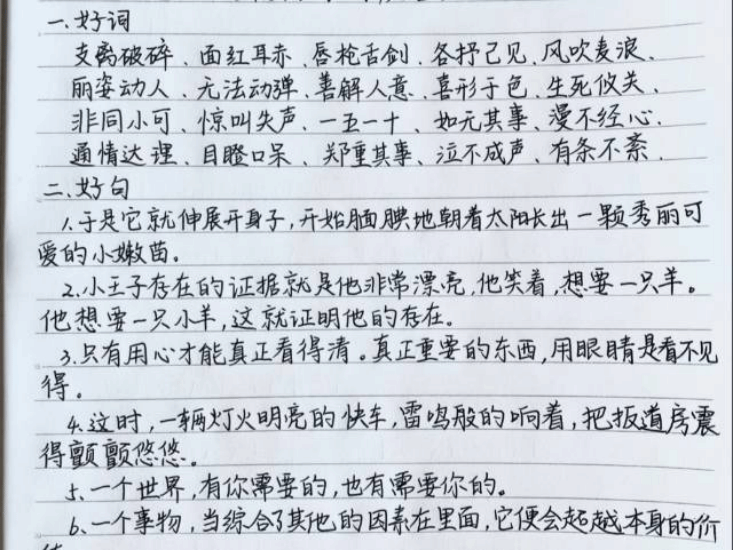 一、好词
支离破碎、面红耳赤、唇枪舌剑、各抒己见、风吹麦浪、
丽姿动人、无法动弹、善解人意、喜形于色、生死攸关、
非同小可、惊叫失声、一五一十、如元其事、漫不经心、
通情达理、目瞪口呆、郑重其事、泣不成声、有条不紊、
二、好句
1.于是它就伸展开身子,开始腼腆地朝着太阳长出一颗秀丽可
爱的小嫩苗。
2.小王子存在的证据就是他非常漂亮,他笑着,想要一只羊。
他想要一只小羊,这就证明他的存在。
3.只有用心才能真正看得清。真正重要的东西,用眼睛是看不见
得。
4.这时,一辆灯火明亮的快车,雷鸣般的响着,把扳道房震
得颤颤悠悠。
5.一个世界,有你需要的,也有需要你的。
6.一个事物,当综合了其他的因素在里面,它便会起越本身的价